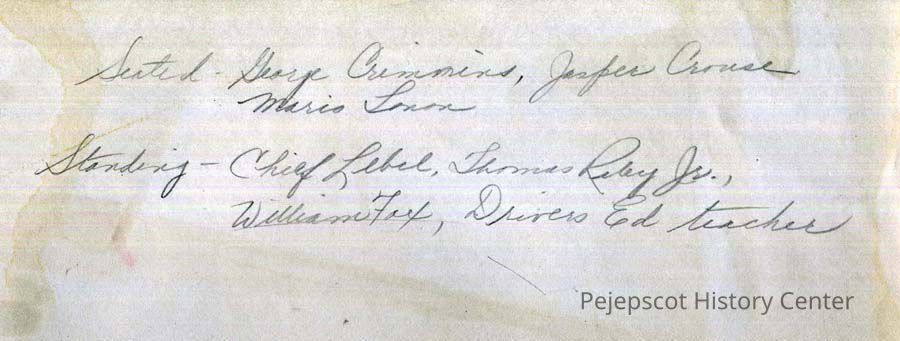 Seated - George Crimmins, Jasper Crouse
Mario Tonon
Standing - Chief Lebel, Thomas Riley Jr.,
William Fox, Drivers Ed teacher
Pejepscot History Center